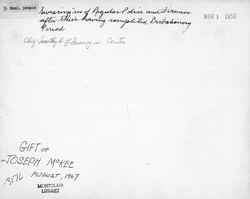 J. Musl. people
Swearing in of Regular Police and Firemen
after their having completed Probationary
Period
MAR 1 1950
Chf Timothy A. Fleming in Center
GIFT OF
JOSEPH McKEE
13176 AUGUST, 1967
MONTCLAIR
LIBRARY